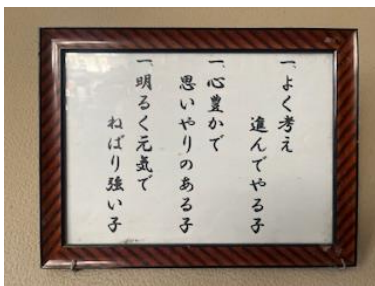 一、よく考え
進んでやる子
一、心豊かで
思いやりのある子
一、明るく元気で
ねばり強い子